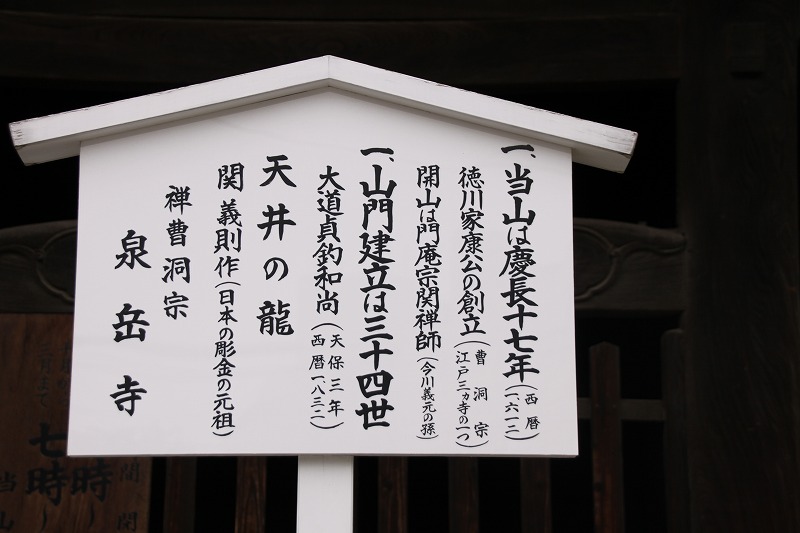 一、当山は慶長十七年（西暦一六一二）
徳川家康公の創立（曹洞宗江戸三ヵ寺の一つ）
開山は門庵宗関禅師（今川義元の孫）
一、山門建立は三十四世
大道貞釣和尚（天保三年西暦一八三二）
天井の龍
関義則作（日本の彫金の元祖）
禅曹洞宗
泉岳寺
開、閉
七時〜
時〜
当山